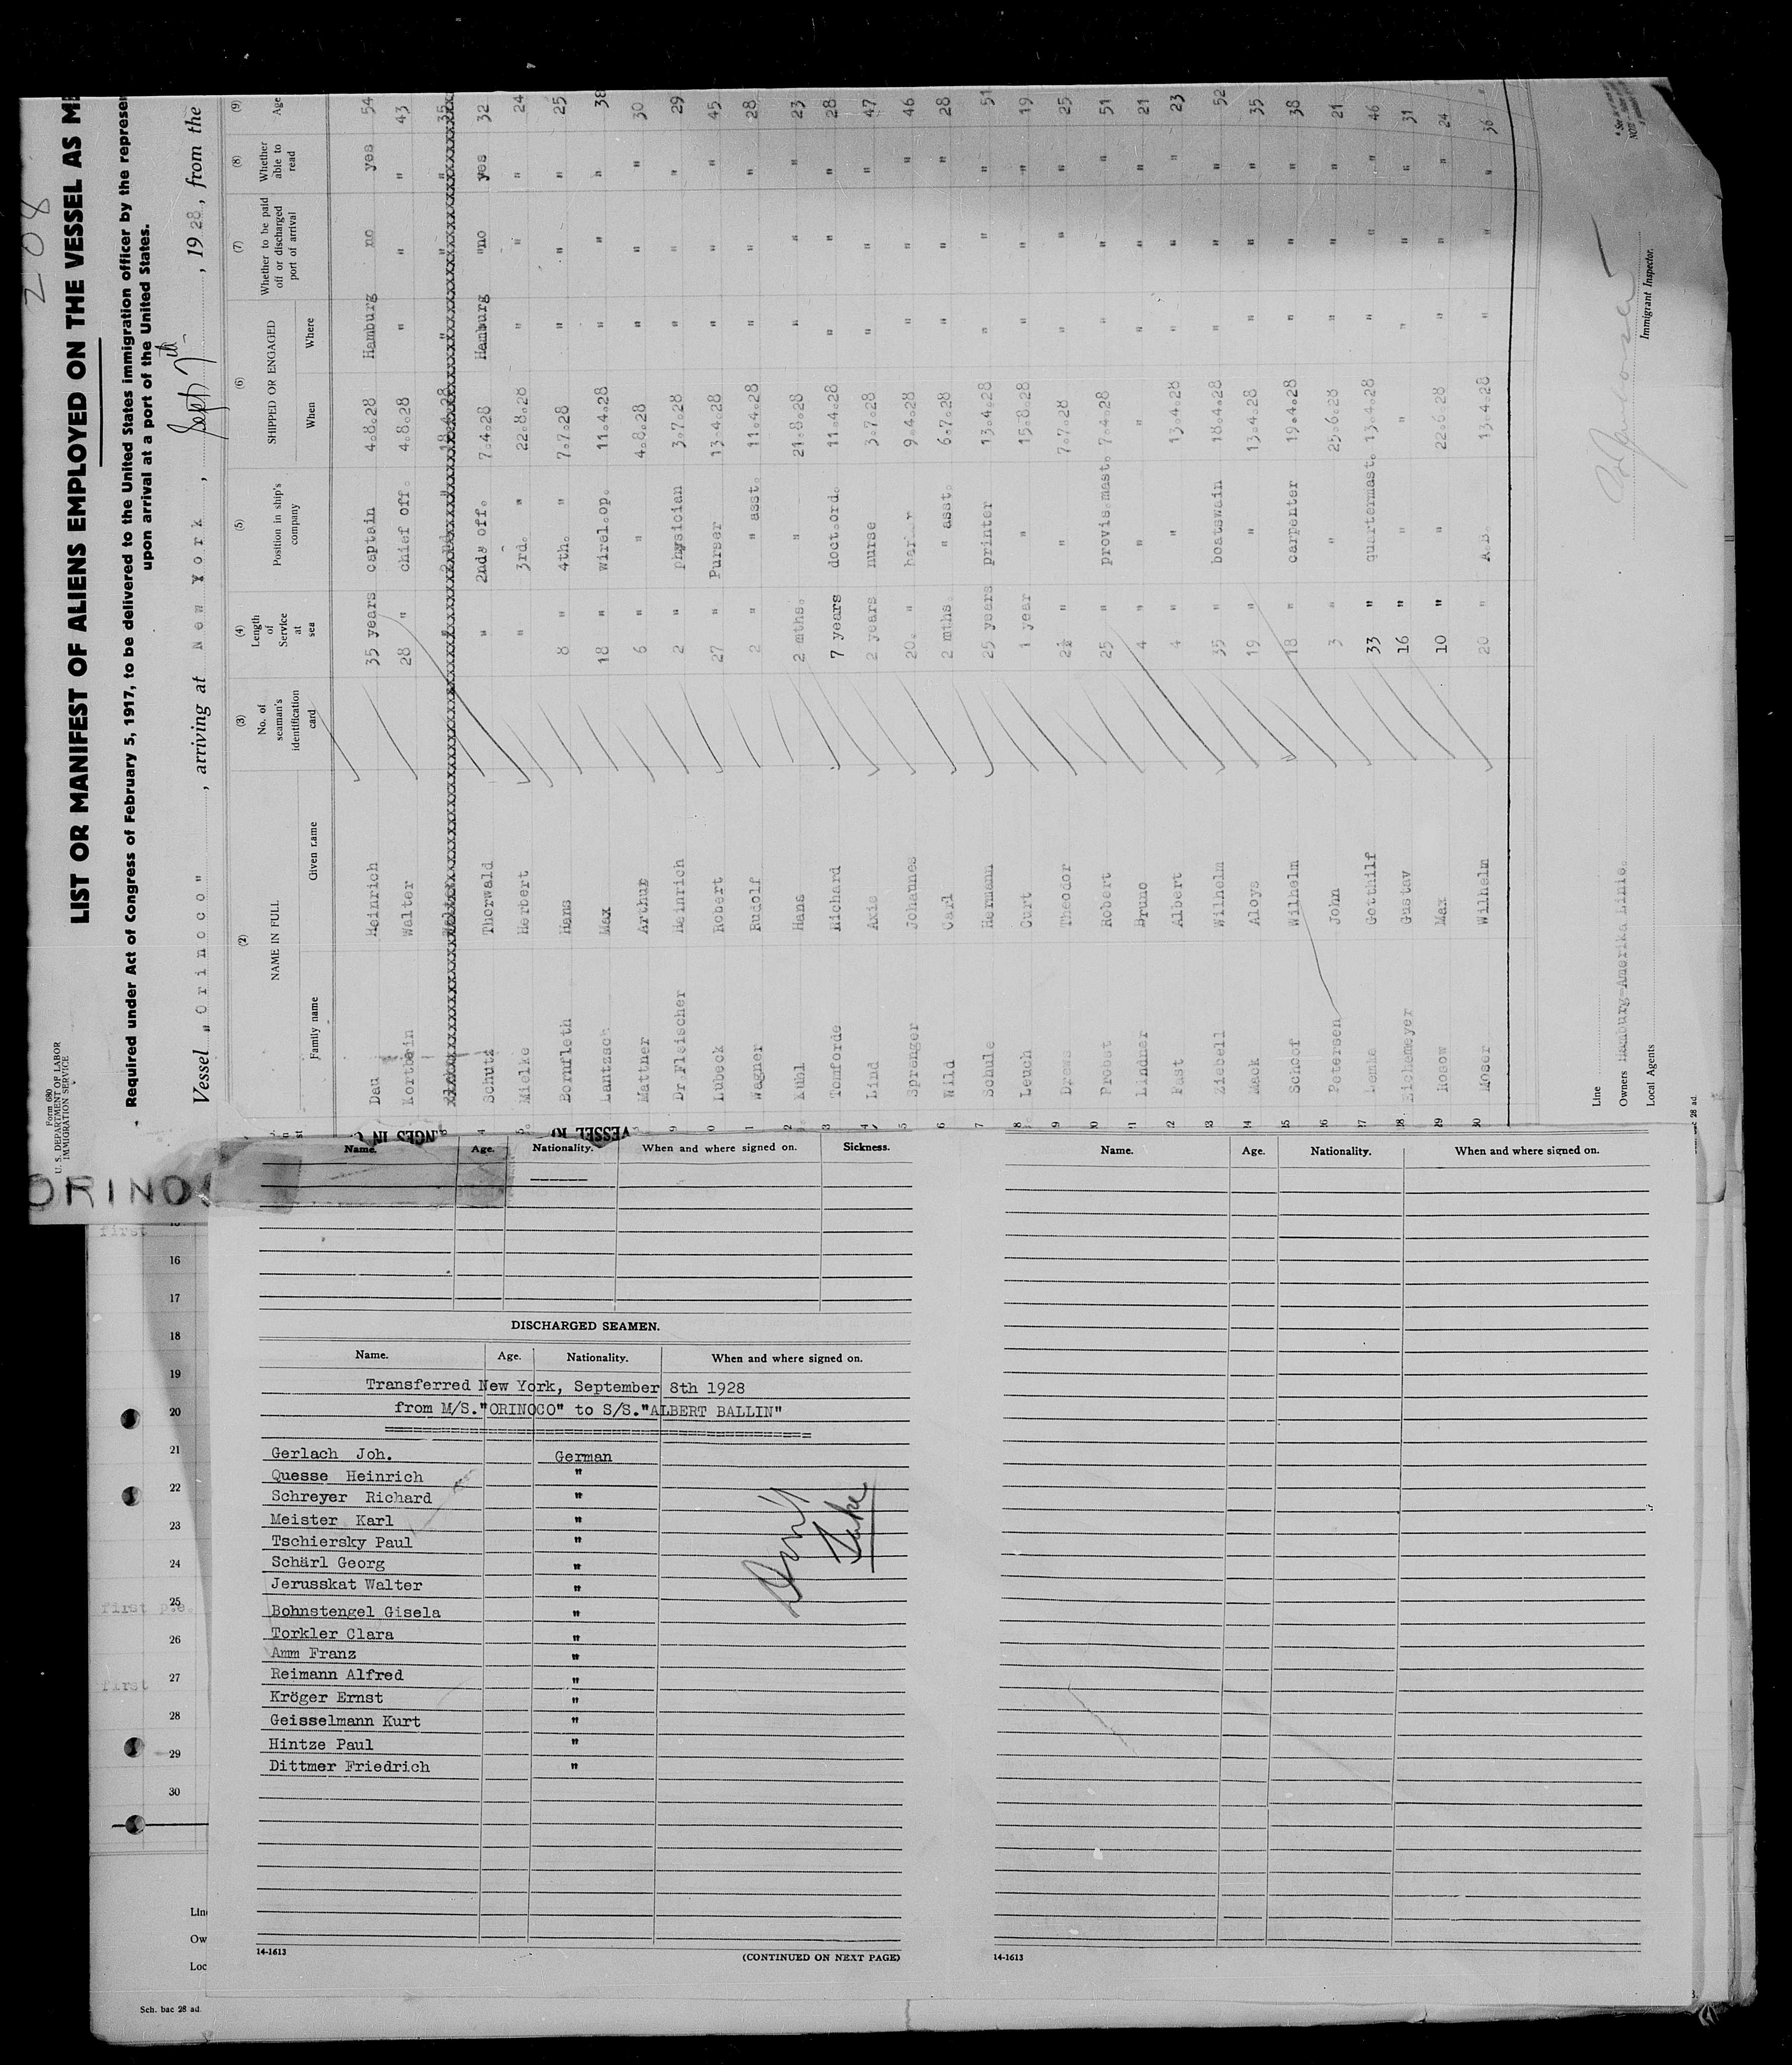 208
Form 680
U. S. DEPARTMENT OF LABOR
IMMIGRATION SERVICE
ORINO
LIST OR MANIFEST OF ALIENS EMPLOYED ON THE VESSEL AS ME
Required under Act of Congress of February 5, 1917, to be delivered to the United States immigration officer by the represen
upon arrival at a port of the United States.
Vessel "Orinoco", arriving at New York, Sept 7th, 1928, from the
(2) (3) (4) (5) (6) (7) (8) (9)
NAME IN FULL No. of seaman's identification card Length of Service at sea Position in ship's company SHIPPED OR ENGAGED Whether to be paid off or discharged port of arrival Whether able to read Age
Family name Given name When Where
Dau Heinrich 35 years captain 4.8.28 Hamburg no yes 54
Kortbein Walter 28 " chief off. 4.8.28 " " " 43
Schutz Thorwald " 2nd off. 7.4.28 Hamburg "no yes 32
Mielke Herbert " 3rd. " 22.8.28 " " " 24
Bornfleth Hans 8 " 4th. " 7.7.28 " " " 25
Lantzsch Max 18 " wirel.op. 11.4.28 " " " 38
Mattner Arthur 6 " " 4.8.28 " " " 30
Dr Fleischer Heinrich 2 " physician 3.7.28 " " " 29
Lubeck Robert 27 " Purser 13.4.28 " " " 45
Wagner Rudolf 2 " " asst. 11.4.28 " " " 28
Kuhl Hans 2 mths. " 21.8.28 " " " 23
Tomforde Richard 7 years doct.ord. 11.4.28 " " " 28
Lind Axie 2 years nurse 3.7.28 " " " 47
Spranger Johannes 20. " 9.4.28 " " " 46
Wild Carl 2 mths. " asst. 6.7.28 " " " 28
Schule Hermann 25 years printer 13.4.28 " " " 51
Leuch Curt 1 year " 15.8.28 " " " 19
Theodor 2½ " " 7.7.28 " " " 25
Probst Robert 25 " provis.mast. 7.4.28 " " " 51
Lindner Bruno 4 " " " " " " 21
Past Albert 4 " " 13.4.28 " " " 23
Ziebell Wilhelm 35 " boatswain 18.4.28 " " " 52
Mack Aloys 19 " " 13.4.28 " " " 35
Schoof Wilhelm 18 " carpenter 19.4.28 " " " 38
Petersen John 3 " " 25.6.28 " " " 21
Gotthilf 33 " quartermast. 13.4.28 " " " 46
Eichemeyer Gustav 16 " " " " " " 31
Rosow Max 10 " " 22.6.28 " " " 24
Moser Wilhelm 20 " A.B. 13.4.28 " " " 36
Line
Owners Hamburg-Amerika Linie.
Local Agents
Immigrant Inspector.
28 ad
Name. Age. Nationality. When and where signed on. Sickness.
Name. Age. Nationality. When and where signed on.
DISCHARGED SEAMEN.
Name. Age. Nationality. When and where signed on.
Transferred New York, September 8th 1928
from M/S."ORINOCO" to S/S."ALBERT BALLIN"
Gerlach Joh. German
Quesse Heinrich "
Schreyer Richard "
Meister Karl "
Tschiersky Paul "
Schärl Georg "
Jerusskat Walter "
Bohnstengel Gisela "
Torkler Clara "
Amm Franz "
Reimann Alfred "
Kröger Ernst "
Geisselmann Kurt "
Hintze Paul "
Dittmer Friedrich "
Don't
Take
14-1613
(CONTINUED ON NEXT PAGE)
14-1613
first
16
17
18
19
20
21
22
23
24
25
first p.e.
26
27
first
28
29
30
Lin
Ow
Loc
Sch. bac 28 ad